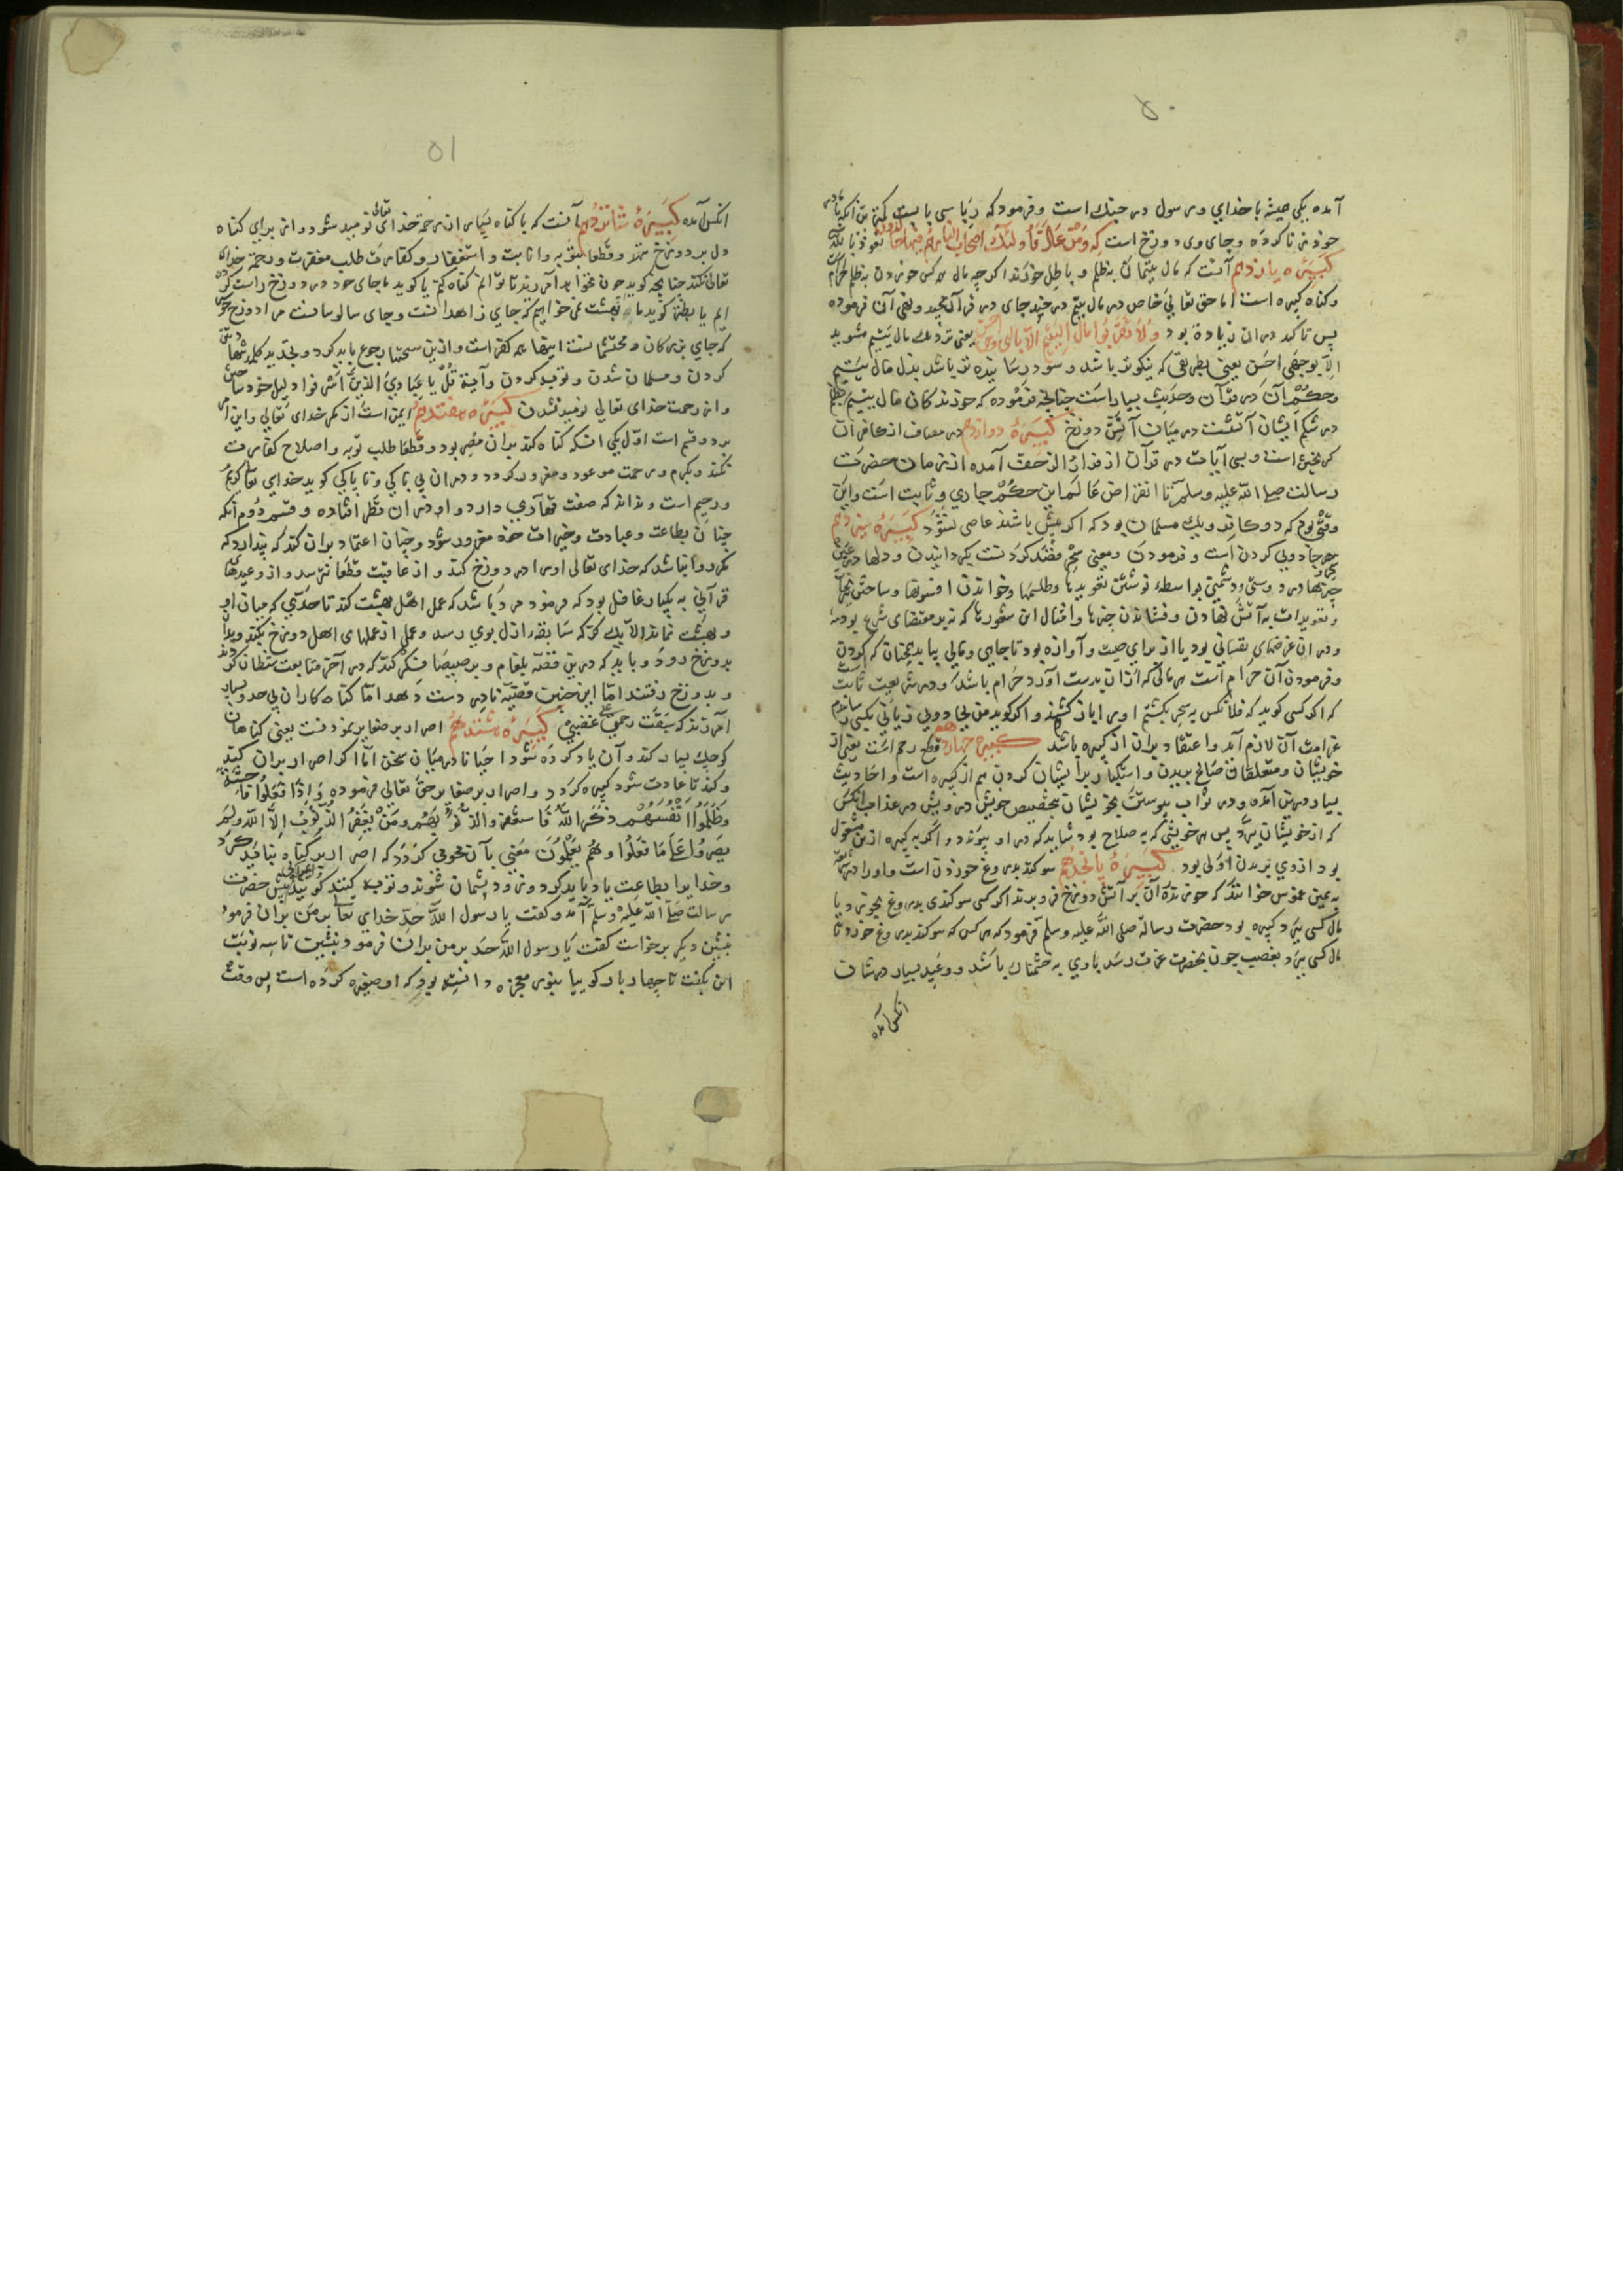 ۵۰
آمده یکی حیثه با خدای و رسول در جنك است و فرمود که ربا سی با بیست کمتر من انکه با مادر
خود زنا کرده و جای وی دوزخ است که وَمَنْ عَادَ فَأُولَئِكَ أَصْحَابُ النَّارِ هُمْ فِیهَا خَالِدُونَ نعوذ بالله
کبیرهٔ یازدهم آنست که مال یتیمان بظلم و باطل خورند اکرچه مال هر کس خوردن بظلم حرام
و کناه کبیره است اما حق تعالی خاص در مال یتیم در چند جای در قرآن مجید و نهی آن فرموده
پس تاکید در ان زیاده بود وَلَا تَقْرَبُوا مَالَ الْیَتِیمِ إِلَّا بِالَّتِی هِیَ أَحْسَنُ یعنی نزدیك مال یتیم مشوید
الا بوجهی احسن یعنی بطریقی که نیکوتر باشد و سود رساننده تر باشد بدل مال یتیم
و حکم آن در قرآن و حدیث بسیار است چنانچه فرموده که خورندکان مال یتیم بظلم
در شکم ایشان آتشست در میان آتش دوزخ کبیرهٔ دوازدهم در مصاف از کافران
کریختن است و بسی آیات در قرآن از فرار الزحف آمده از زمان حضرت
رسالت صلی الله علیه وسلم تا انقراض عالم این حکم جاری و ثابت است و این
وقتی بود که دو کافر و یك مسلمان بود که اکر بیش باشند عاصی نشود کبیرهٔ سیزدهم
سحر جادویی کردن است و فرمودن و معنی سحر قصد کردنست بکردانیدن و دلها در
چیزها در دوستی و دشمنی بواسطهٔ نوشتن تعویذها و طلسمها و خواندن افسونها و ساختن
و تعویذات به آتش نهادن و فشاندن چیزها و امثال این شعورها که نه بر مقتضای شرع بود
و در ان غرضهای نفسانی بود یا از برای صیت و آوازه بود تا جاهی و مالی بیابد همچنان که کردن
و فرمودن آن حرام است هر مالی که از ان بدست آورد حرام باشد و در شریعت ثابت
که اکر کسی کوید که فلان کس به سحر بکشتم او را باز کشند و اکر کوید من بجادویی زیانی بکسی رساندم
غرامت آن لازم آید و اعتقاد بران از کبیره باشد کبیره چهاردهم قطع رحم است یعنی از
خویشان و متعلقان صالح بریدن و استکبار بر ایشان کردن هم از کبیره است و احادیث
بسیار درین آمده و در ثواب پیوستن بخویشان بتخصیص خویش درویش در عذاب انکس
که از خویشان ببرد پس هر خویشی که به صلاح بود شاید که در او پیوندد و اکر به کبیره ازین مشغول
بود از وی بریدن اولی بود کبیرهٔ پانزدهم سوکند بدروغ خوردن است و او را در شریعت
به یمین غموس خوانند که خورندهٔ آن بر آتش دوزخ فرو برند اکر کسی سوکندی بدروغ بخورد و یا
مال کسی ببرد کبیره بود حضرت رسالة صلی الله علیه وسلم فرمود که هر کس که سوکند بدروغ خورد تا
مال کسی ببرد بغصب چون بحضرت عزت رسد باری به خشمناك باشد و وعید بسیار در شان
انکس آمده
۵۱
انکس آمده کبیرهٔ شانزدهم آنست که با کناه بسیار از رحمة خدای تعالی نومید شود و از برای کناه
دل بر دوزخ نهد و قطعا توبه و انابت و استغفار و کفارت طلب مغفرت و رحمة خدای
تعالی نکند چنانچه کوید چون نخواهد آمرزید تا توانم کناه کنم یا کوید ما جای خود در دوزخ راست کرده
ایم یا بطنز کوید ما بهشت نمی خواهیم که جای زاهدانست و جای سالوسانست مرا دوزخ خوش
که جای بزرکان و محتشمانست اینها همه کفر است و ازین سخنها رجوع باید کرد و تجدید کلمه شهادت
کردن و مسلمان شدن و توبه کردن و آیة قُلْ یَا عِبَادِیَ الَّذِینَ أَسْرَفُوا دلیل خود ساختن
و از رحمت خدای تعالی نومید نشدن کبیرهٔ هفتدهم ایمن است از مکر خدای تعالی و این امن
بر دو قسم است اول یکی انکه کناه کند بران مصر بود و قطعا طلب توبه و اصلاح کفارت
نکند و بکرم و رحمت موعود و مغرور کردد و در ان بی باکی و ناپاکی کوید خدای تعالی کریم
و رحیم است و نداند که صفت قهاری دارد و او در ان قطر افتاده و قسم دوم انکه
چنان بطاعت و عبادت و خیرات خود مغرور شود و چنان اعتماد بران کند که پندارد که
مکر روا نباشد که خدای تعالی او را در دوزخ کند و از عاقبت قطعا نترسد و از وعیدهای
قرآنی به یکبار غافل بود که فرمود مردی باشد که عمل اهل بهشت کند تا حدی که میان او
و بهشت نماند الا یك کز که سابقهٔ ازل بوی رسد و عملی از عملهای اهل دوزخ بکند و بران
بدوزخ رود و باید که درین قصهٔ بلعام و برصیصا فکر کند که در آخر متابعت شیطان کردند
و بدوزخ رفتند اما این چنین قضیه نادر دست دهد اما کناه کاران بی حد و بسیار
آمرزند که سَبَقَتْ رَحْمَتِی غَضَبِی کبیرهٔ هشتدهم اصرار بر صغایر نمودنست یعنی کناهان
کوچك بسیار کند و آن یاد کرده شود احیانا در میان سخن اما اکر اصرار بران کند
و کند تا عادت شود کبیره کردد و اصرار بر صغایر حق تعالی فرموده وَإِذَا فَعَلُوا فَاحِشَةً
وَظَلَمُوا أَنْفُسَهُمْ ذَكَرُوا اللَّهَ فَاسْتَغْفَرُوا لِذُنُوبِهِمْ وَمَنْ یَغْفِرُ الذُّنُوبَ إِلَّا اللَّهُ وَلَمْ
یُصِرُّوا عَلَى مَا فَعَلُوا وَهُمْ یَعْلَمُونَ معنی بآن محوی کردد که اصرار بر کناه نباید کرد
و خدایرا بطاعت یاد باید کرد و زود پشمان شوند و توبه کنند کویند اعرابی پیش حضرت
رسالت صلی الله علیه وسلم آمد و کفت یا رسول الله حد خدای تعالی بر من بران فرمود
بنشین دیکر برخواست کفت یا رسول الله حد بر من بران فرمود بنشین تا سه نوبت
این بکفت تا چهار بار کوییا بنور معجزه دانسته بود که او صغیره کرده است پس وقت